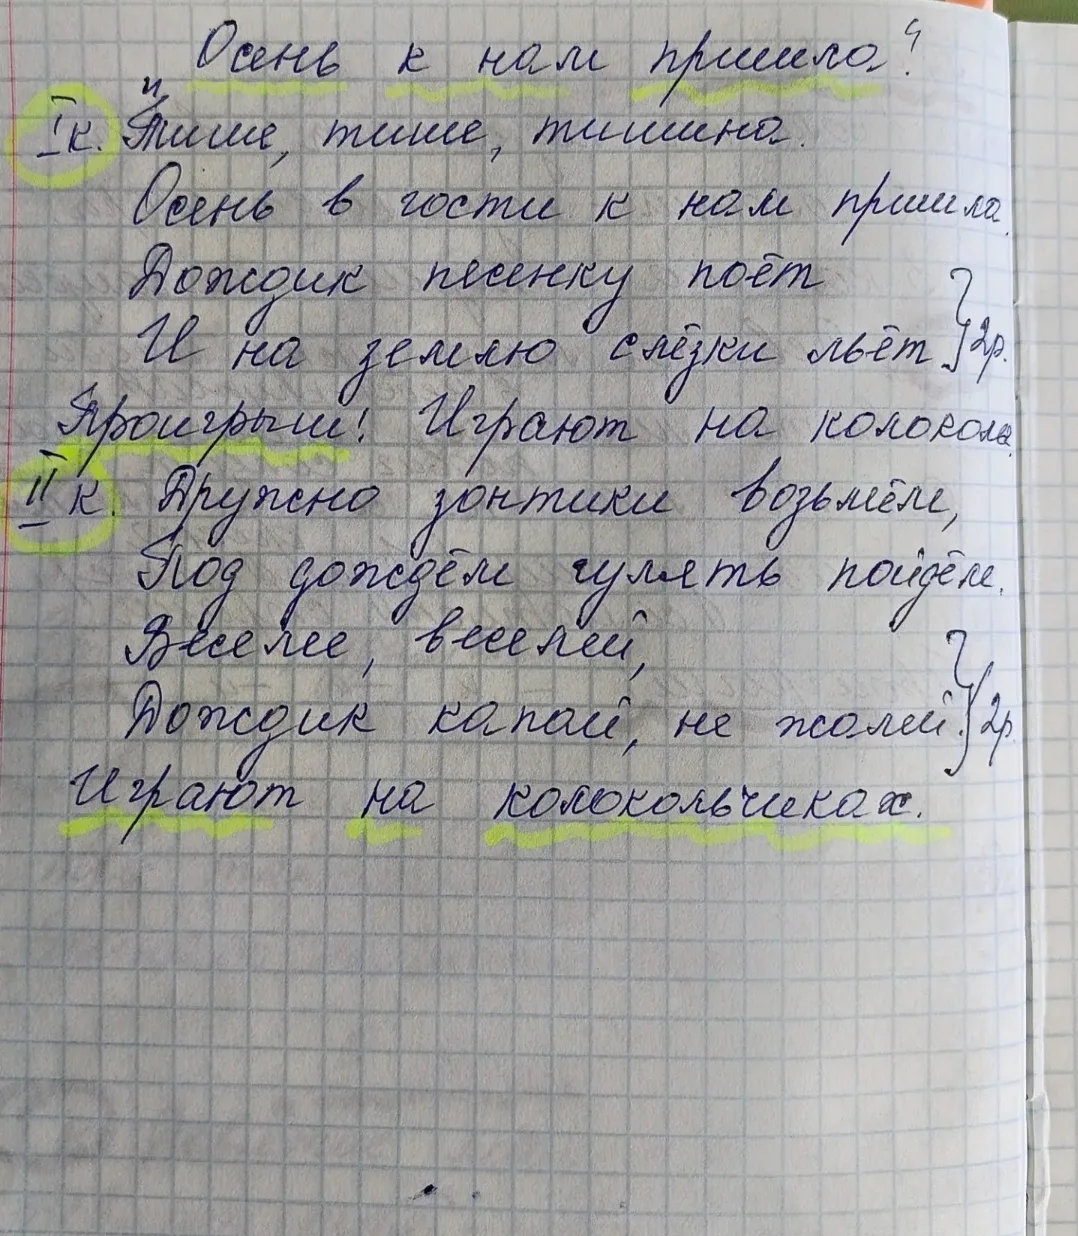 Осень к нам пришла"
Iк. "Тише, тише, тишина.
Осень в гости к нам пришла.
Дождик песенку поёт
И на землю слёзки льёт } 2р.
Проигрыш! Играют на колокола
II к. Дружно зонтики возьмём,
Под дождём гулять пойдём.
Веселее, веселей,
Дождик капай, не жалей. } 2р.
Играют на колокольчиках.